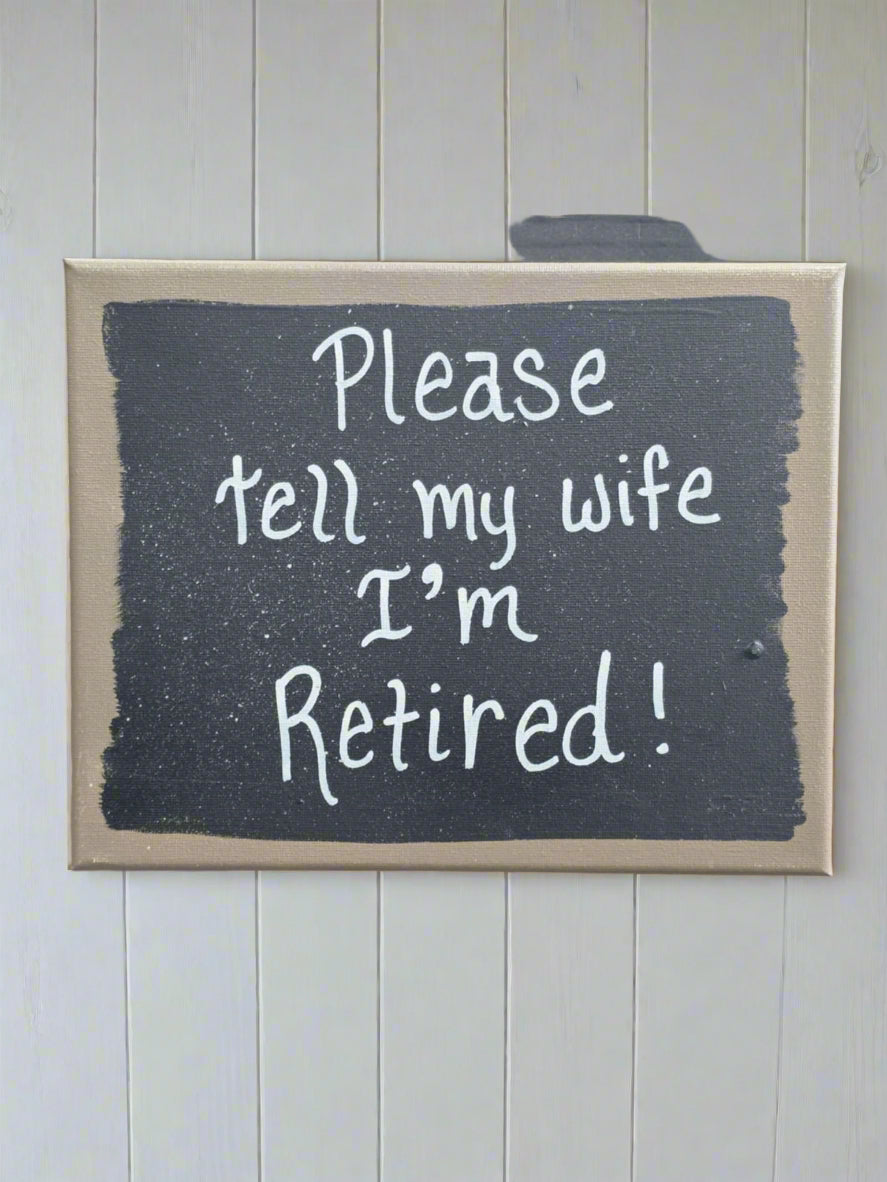 Please
tell my wife
I'm
Retired!